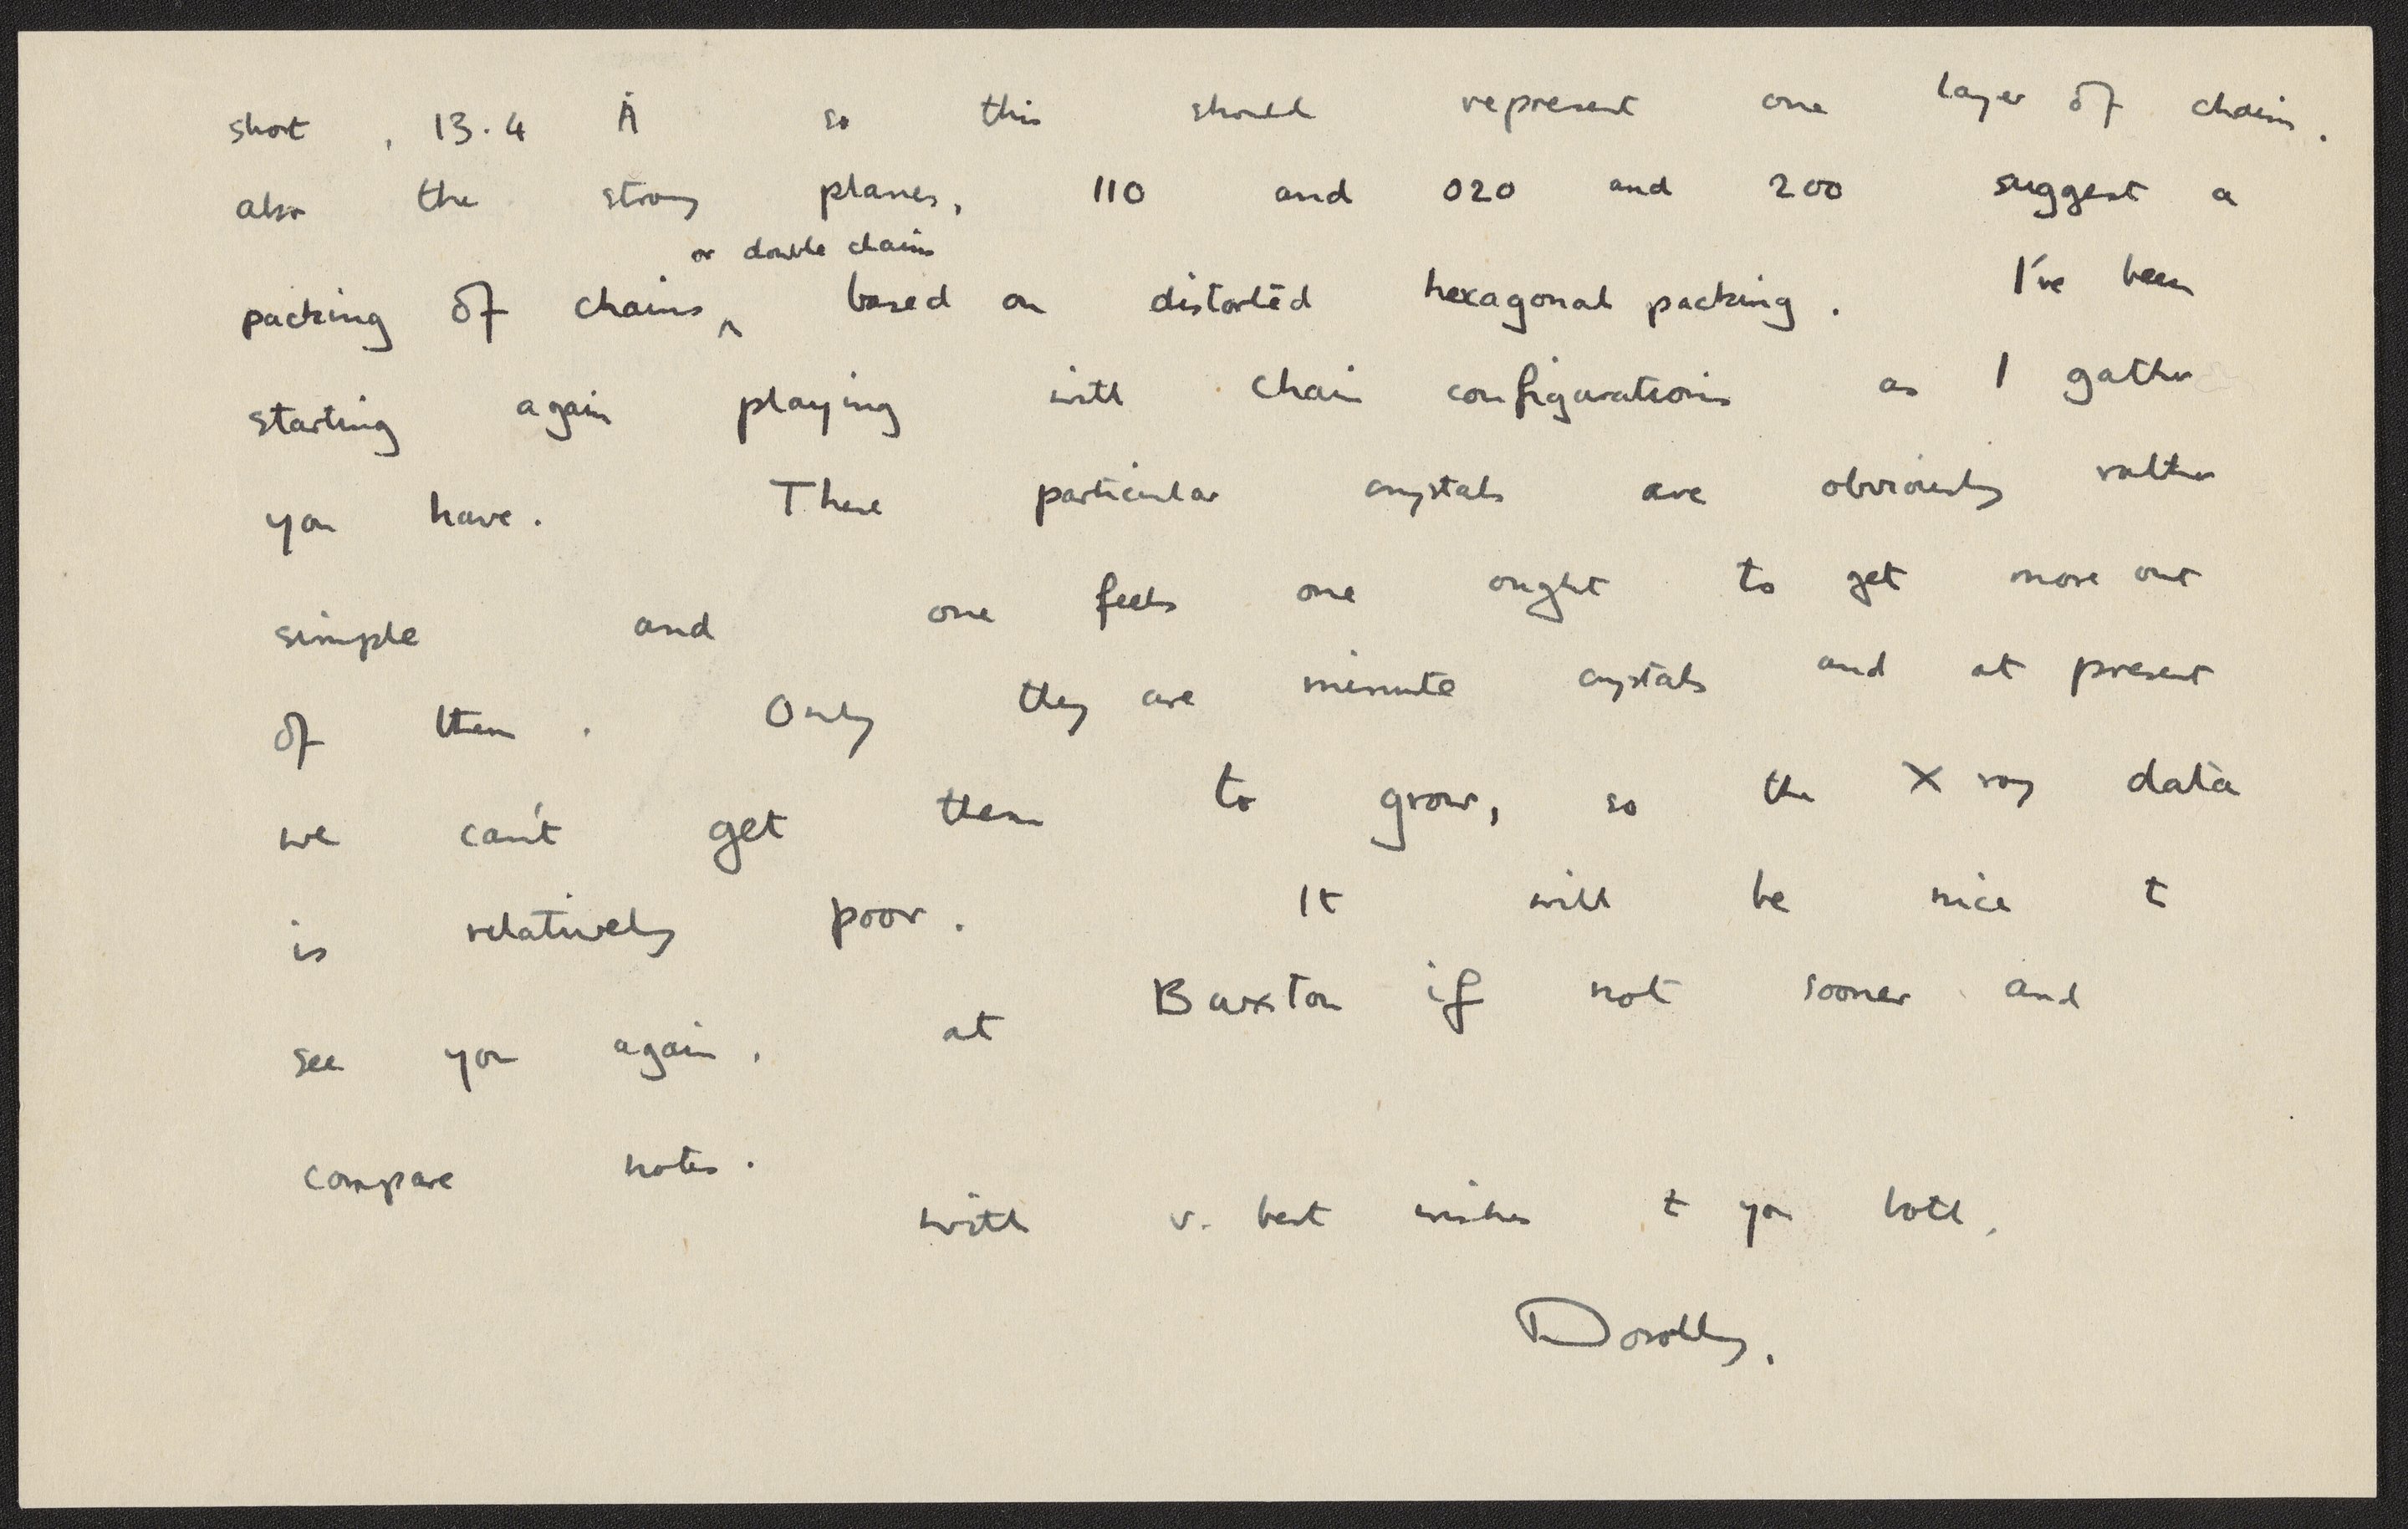 short, 13.4 Å so this should represent one layer of chains.
also the strong planes, 110 and 020 and 200 suggest a
or double chains
packing of chains ^ based on distorted hexagonal packing. I've been
starting again playing with chain configurations as I gather
you have. These particular crystals are obviously rather
simple and one feels one ought to get more out
of them. Only they are minute crystals and at present
we can't get them to grow, so the X ray data
is relatively poor. It will be nice t
see you again, at Buxton if not sooner and
compare notes.
with v. best wishes t you both,
Dorothy.